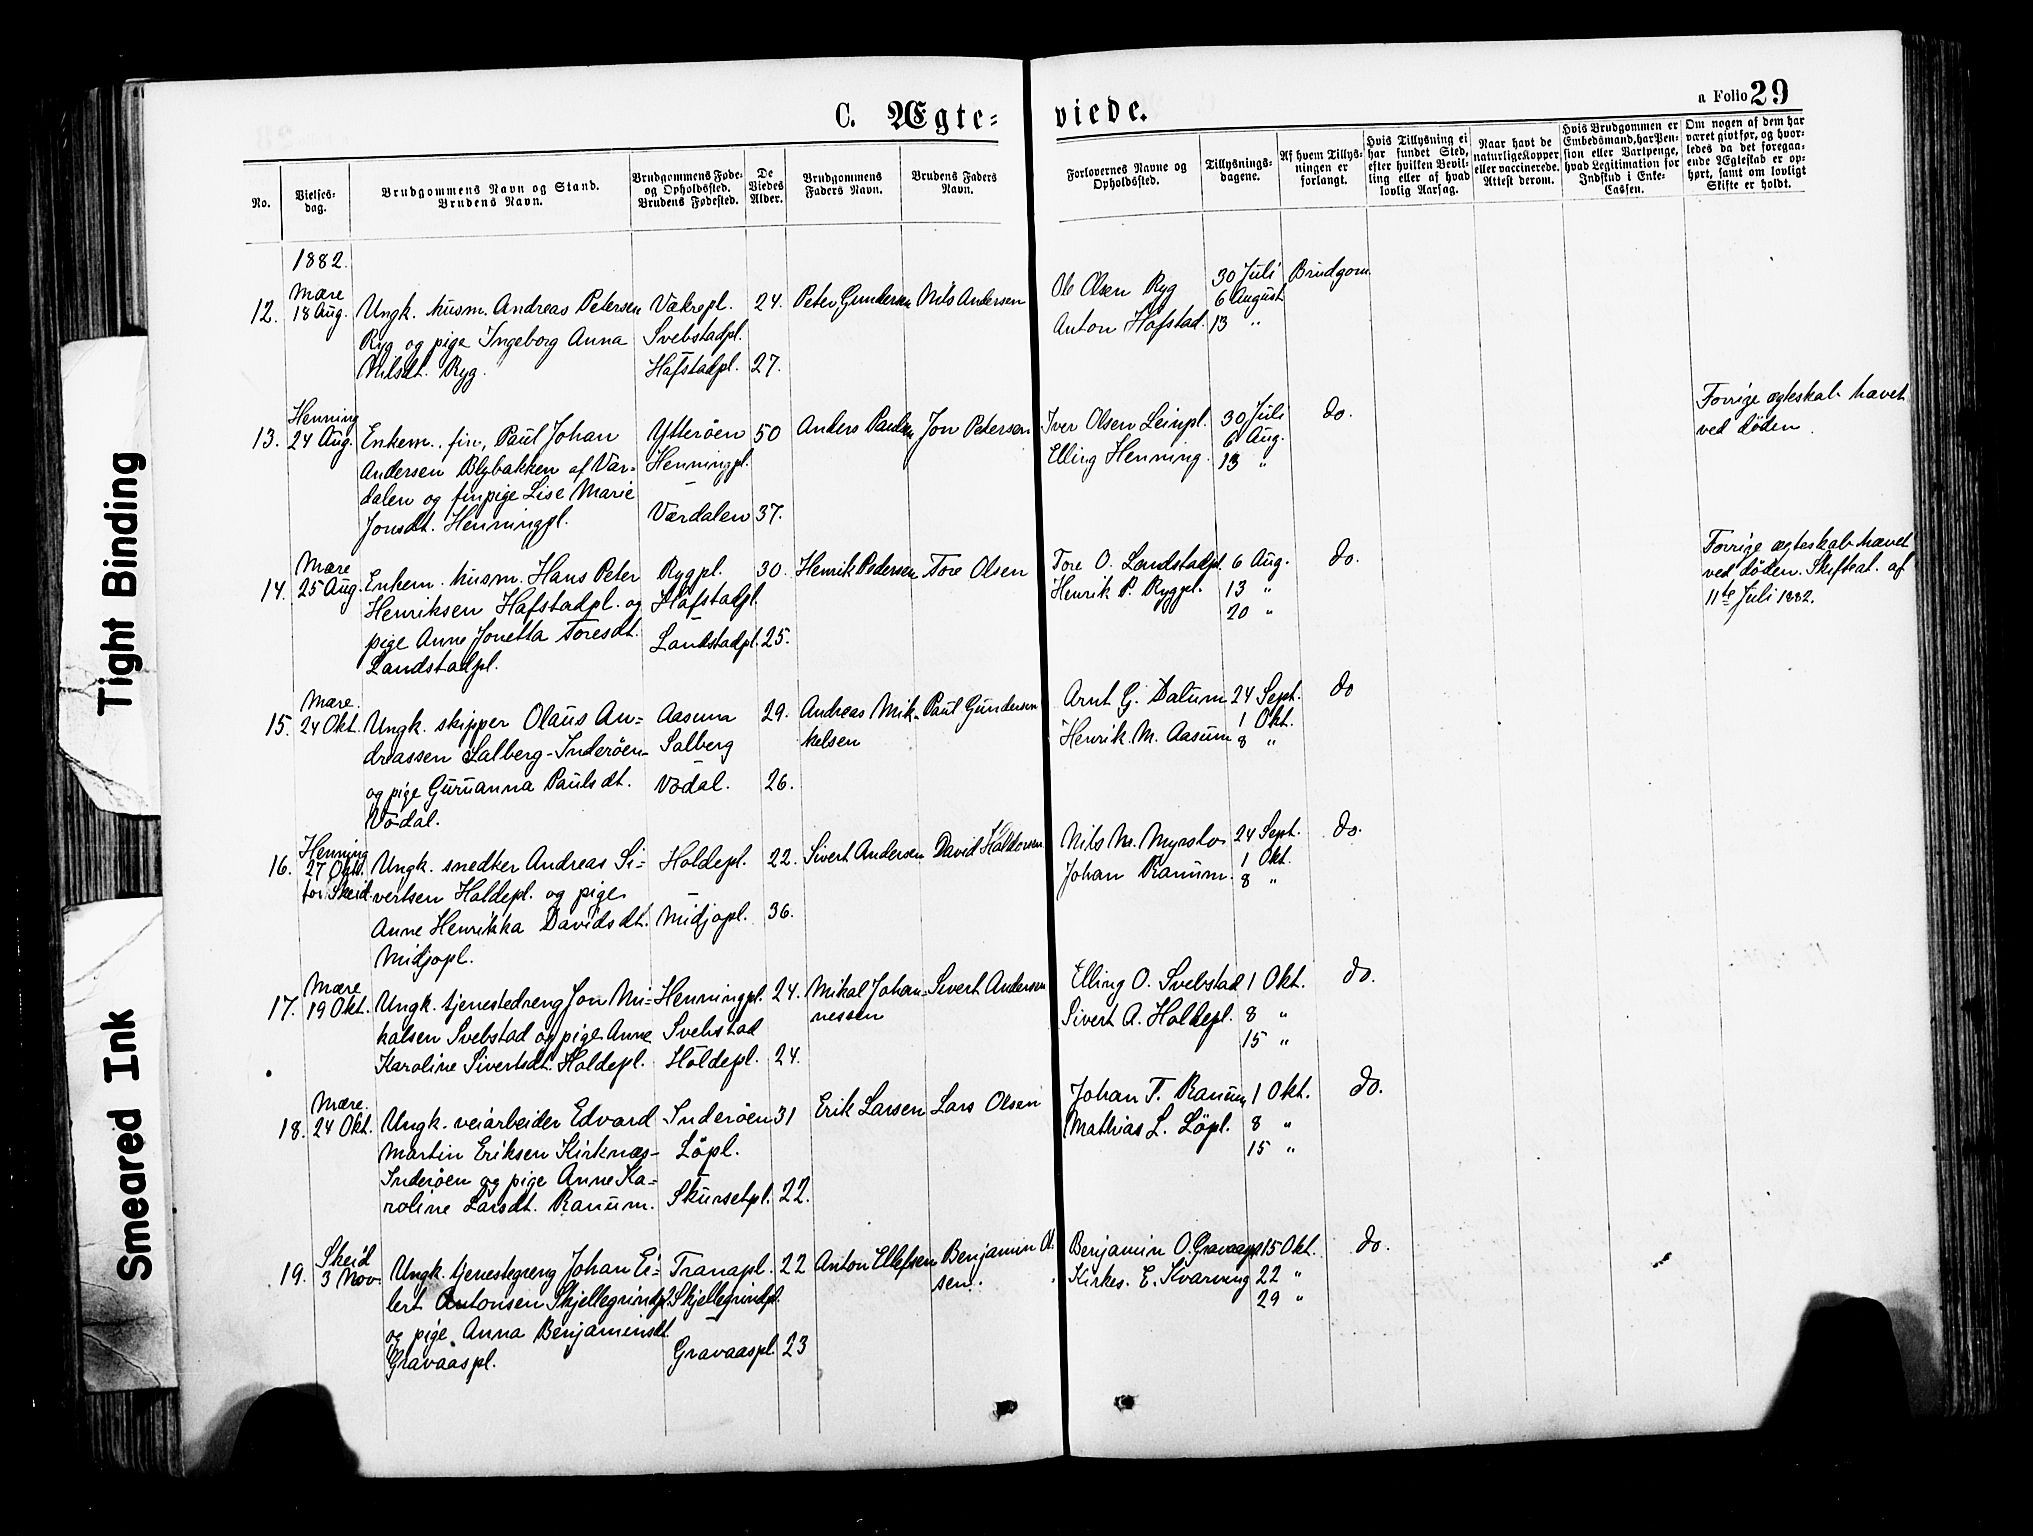 C. Ægte-
viede.
a Folio 29
No.
Vielses-
dag.
Brudgommens Navn og Stand.
Brudens Navn.
Brudgommens Føde-
og Opholdssted.
Brudens Fødested.
De
Viedes
Alder.
Brudgommens
Faders Navn.
Brudens Faders
Navn.
Forlovernes Navne og
Opholdssted.
Tillysnings-
dagene.
Af hvem Tillys-
ningen er
forlangt.
Hvis Tillysning ei
har fundet Sted,
efter hvilken Bevil-
ling eller af hvad
lovlig Aarsag.
Naar havt de
naturlige Kopper
eller vaccinerede.
Attest derom.
Hvis Brudgommen er
Embedsmand, har Pen-
sion eller Vartpenge,
hvad Legitimation for
Indskud i Enke-
Cassen.
Om nogen af dem har
været gift før, og hvor-
ledes da det foregaa-
ende Ægtestad er op-
hørt, samt om lovligt
Skifte er holdt.
1882.
12.
Mære
18 Aug.
Ungk. husm. Andreas Petersen
Ryg og pige Ingeborg Anna
Nilsdt. Ryg.
Vakrepl.
Svebstadpl.
Hafstadpl.
24.
27.
Peter Gundersen
Nils Andersen
Ole Olsen Ryg
Anton Hafstad.
30 Juli
6 August
13 "
Brudgom.
13.
Henning
24 Aug.
Enkem., fin, Paul Johan
Andersen Blybakken af Vær-
dalen og finpige Lise Marie
Jonsdt. Henningpl.
Ytterøen
Henningpl.
Værdalen
50
37.
Anders Paulsen
Jon Petersen
Iver Olsen Leinpl.
Elling Henning.
30 Juli
6 Aug.
13 "
do.
Forrige ægteskab hævet
ved døden.
14.
Mære
25 Aug.
Enkem. husm. Hans Peter
Henriksen Hafstadpl. og
pige Anne Jonetta Toresdt.
Landstadpl.
Rygpl.
Hafstadpl.
Landstadpl.
30.
25.
Henrik Pedersen
Tore Olsen
Tore O. Landstadpl.
Henrik P. Rygpl.
6 Aug.
13 "
20 "
do.
Forrige ægteskab hævet
ved døden. Skifteat. af
11te Juli 1882.
15.
Mære.
24 Okt.
Ungk. skipper Olaus An-
dreassen Salberg-Inderøen
og pige Guruanna Paulsdt.
Vodal.
Aasum
Salberg
Vodal.
29.
26.
Andreas Mik-
kelsen
Paul Gundersen
Arnt G. Dalum
Henrik M. Aasum
24 Sept.
1 Okt.
8 "
do
16.
Henning
27 Okt.
for Skeid
Ungk. snedker Andreas Si-
vertsen Holdepl. og pige
Anne Henrikka Davidsdt.
Midjopl.
Holdepl.
Midjopl.
22.
36.
Sivert Andersen
David Haldorsen
Nils M. Myrslo
Johan Ranum.
24 Sept.
1 Okt.
8 "
do.
17.
Mære
19 Okt.
Ungk. tjenestedreng Jon Mi-
kalsen Svebstad og pige Anne
Karoline Sivertsdt. Holdepl.
Henningpl.
Svebstad
Holdepl.
24.
24.
Mikal Johan-
nessen
Sivert Andersen
Elling O. Svebstad
Sivert A. Holdepl.
1 Okt.
8 "
15 "
do.
18.
Mære.
24 Okt.
Ungk. veiarbeider Edvard
Martin Eriksen Kirknæs-
Inderøen og pige Anne Ka-
roline Larsdt. Ranum.
Inderøen
Løpl.
Skursetpl.
31
22.
Erik Larsen
Lars Olsen
Johan T. Ranum
Mathias L. Løpl.
1 Okt.
8 "
15 "
do.
19.
Skeid
3 Nov
Ungk. tjenestegreng Johan Ei-
lert Antonsen Skjellegrindpl.
og pige Anna Benjaminsdt.
Gravaaspl.
Tranapl.
Skjellegrindpl.
Gravaaspl.
22
23
Anton Ellefsen
Benjamin Ol-
sen.
Benjamin O. Gravaaspl
Kirkes. E. Kvarving
15 Okt.
22 "
29 "
do.
Tight Binding
Smeared Ink